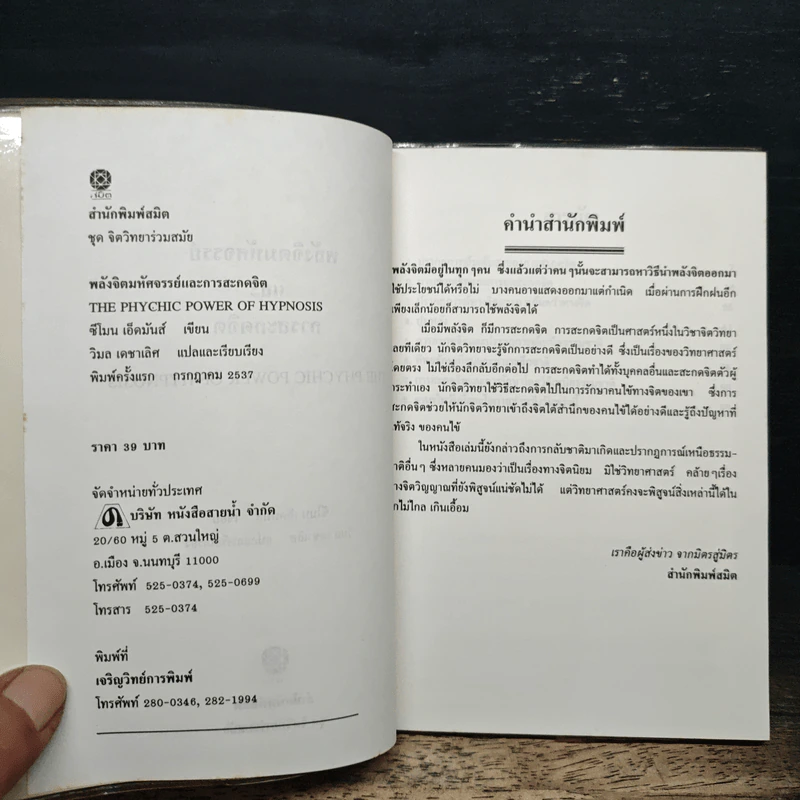 สมิต
สำนักพิมพ์สมิต
ชุด จิตวิทยาร่วมสมัย
พลังจิตมหัศจรรย์และการสะกดจิต
THE PHYCHIC POWER OF HYPNOSIS
ซีโมน เอ็ดมันส์ เขียน
วิมล เดชาเลิศ แปลและเรียบเรียง
พิมพ์ครั้งแรก กรกฎาคม 2537
ราคา 39 บาท
จัดจำหน่ายทั่วประเทศ
บริษัท หนังสือสายน้ำ จำกัด
20/60 หมู่ 5 ต.สวนใหญ่
อ.เมือง จ.นนทบุรี 11000
โทรศัพท์ 525-0374, 525-0699
โทรสาร 525-0374
พิมพ์ที่
เจริญวิทย์การพิมพ์
โทรศัพท์ 280-0346, 282-1994
คำนำสำนักพิมพ์
พลังจิตมีอยู่ในทุกๆคน ซึ่งแล้วแต่ว่าคนๆนั้นจะสามารถหาวิธีนำพลังจิตออกมา
ใช้ประโยชน์ได้หรือไม่ บางคนอาจแสดงออกมาแต่กำเนิด เมื่อผ่านการฝึกฝนอีก
เพียงเล็กน้อยก็สามารถใช้พลังจิตได้
เมื่อมีพลังจิต ก็มีการสะกดจิต การสะกดจิตเป็นศาสตร์หนึ่งในวิชาจิตวิทยา
เลยทีเดียว นักจิตวิทยาจะรู้จักการสะกดจิตเป็นอย่างดี ซึ่งเป็นเรื่องของวิทยาศาสตร์
โดยตรง ไม่ใช่เรื่องลึกลับอีกต่อไป การสะกดจิตทำได้ทั้งบุคคลอื่นและสะกดจิตตัวผู้
กระทำเอง นักจิตวิทยาใช้วิธีสะกดจิตไปในการรักษาคนไข้ทางจิตของเขา ซึ่งการ
สะกดจิตช่วยให้นักจิตวิทยาเข้าถึงจิตใต้สำนึกของคนไข้ได้อย่างดีและรู้ถึงปัญหาที่
แท้จริง ของคนไข้
ในหนังสือเล่มนี้ยังกล่าวถึงการกลับชาติมาเกิดและปรากฏการณ์เหนือธรรม-
ชาติอื่นๆ ซึ่งหลายคนมองว่าเป็นเรื่องทางจิตนิยม มิใช่วิทยาศาสตร์ คล้ายๆเรื่อง
ทางจิตวิญญาณที่ยังพิสูจน์แน่ชัดไม่ได้ แต่วิทยาศาสตร์คงจะพิสูจน์สิ่งเหล่านี้ได้ใน
อีกไม่ไกล เกินเอื้อม
เราคือผู้ส่งข่าว จากมิตรสู่มิตร
สำนักพิมพ์สมิต